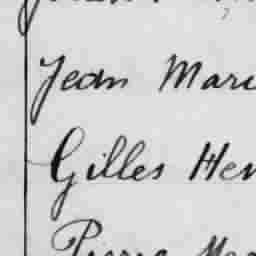 Jean Mari
Gilles Hen
Pierre